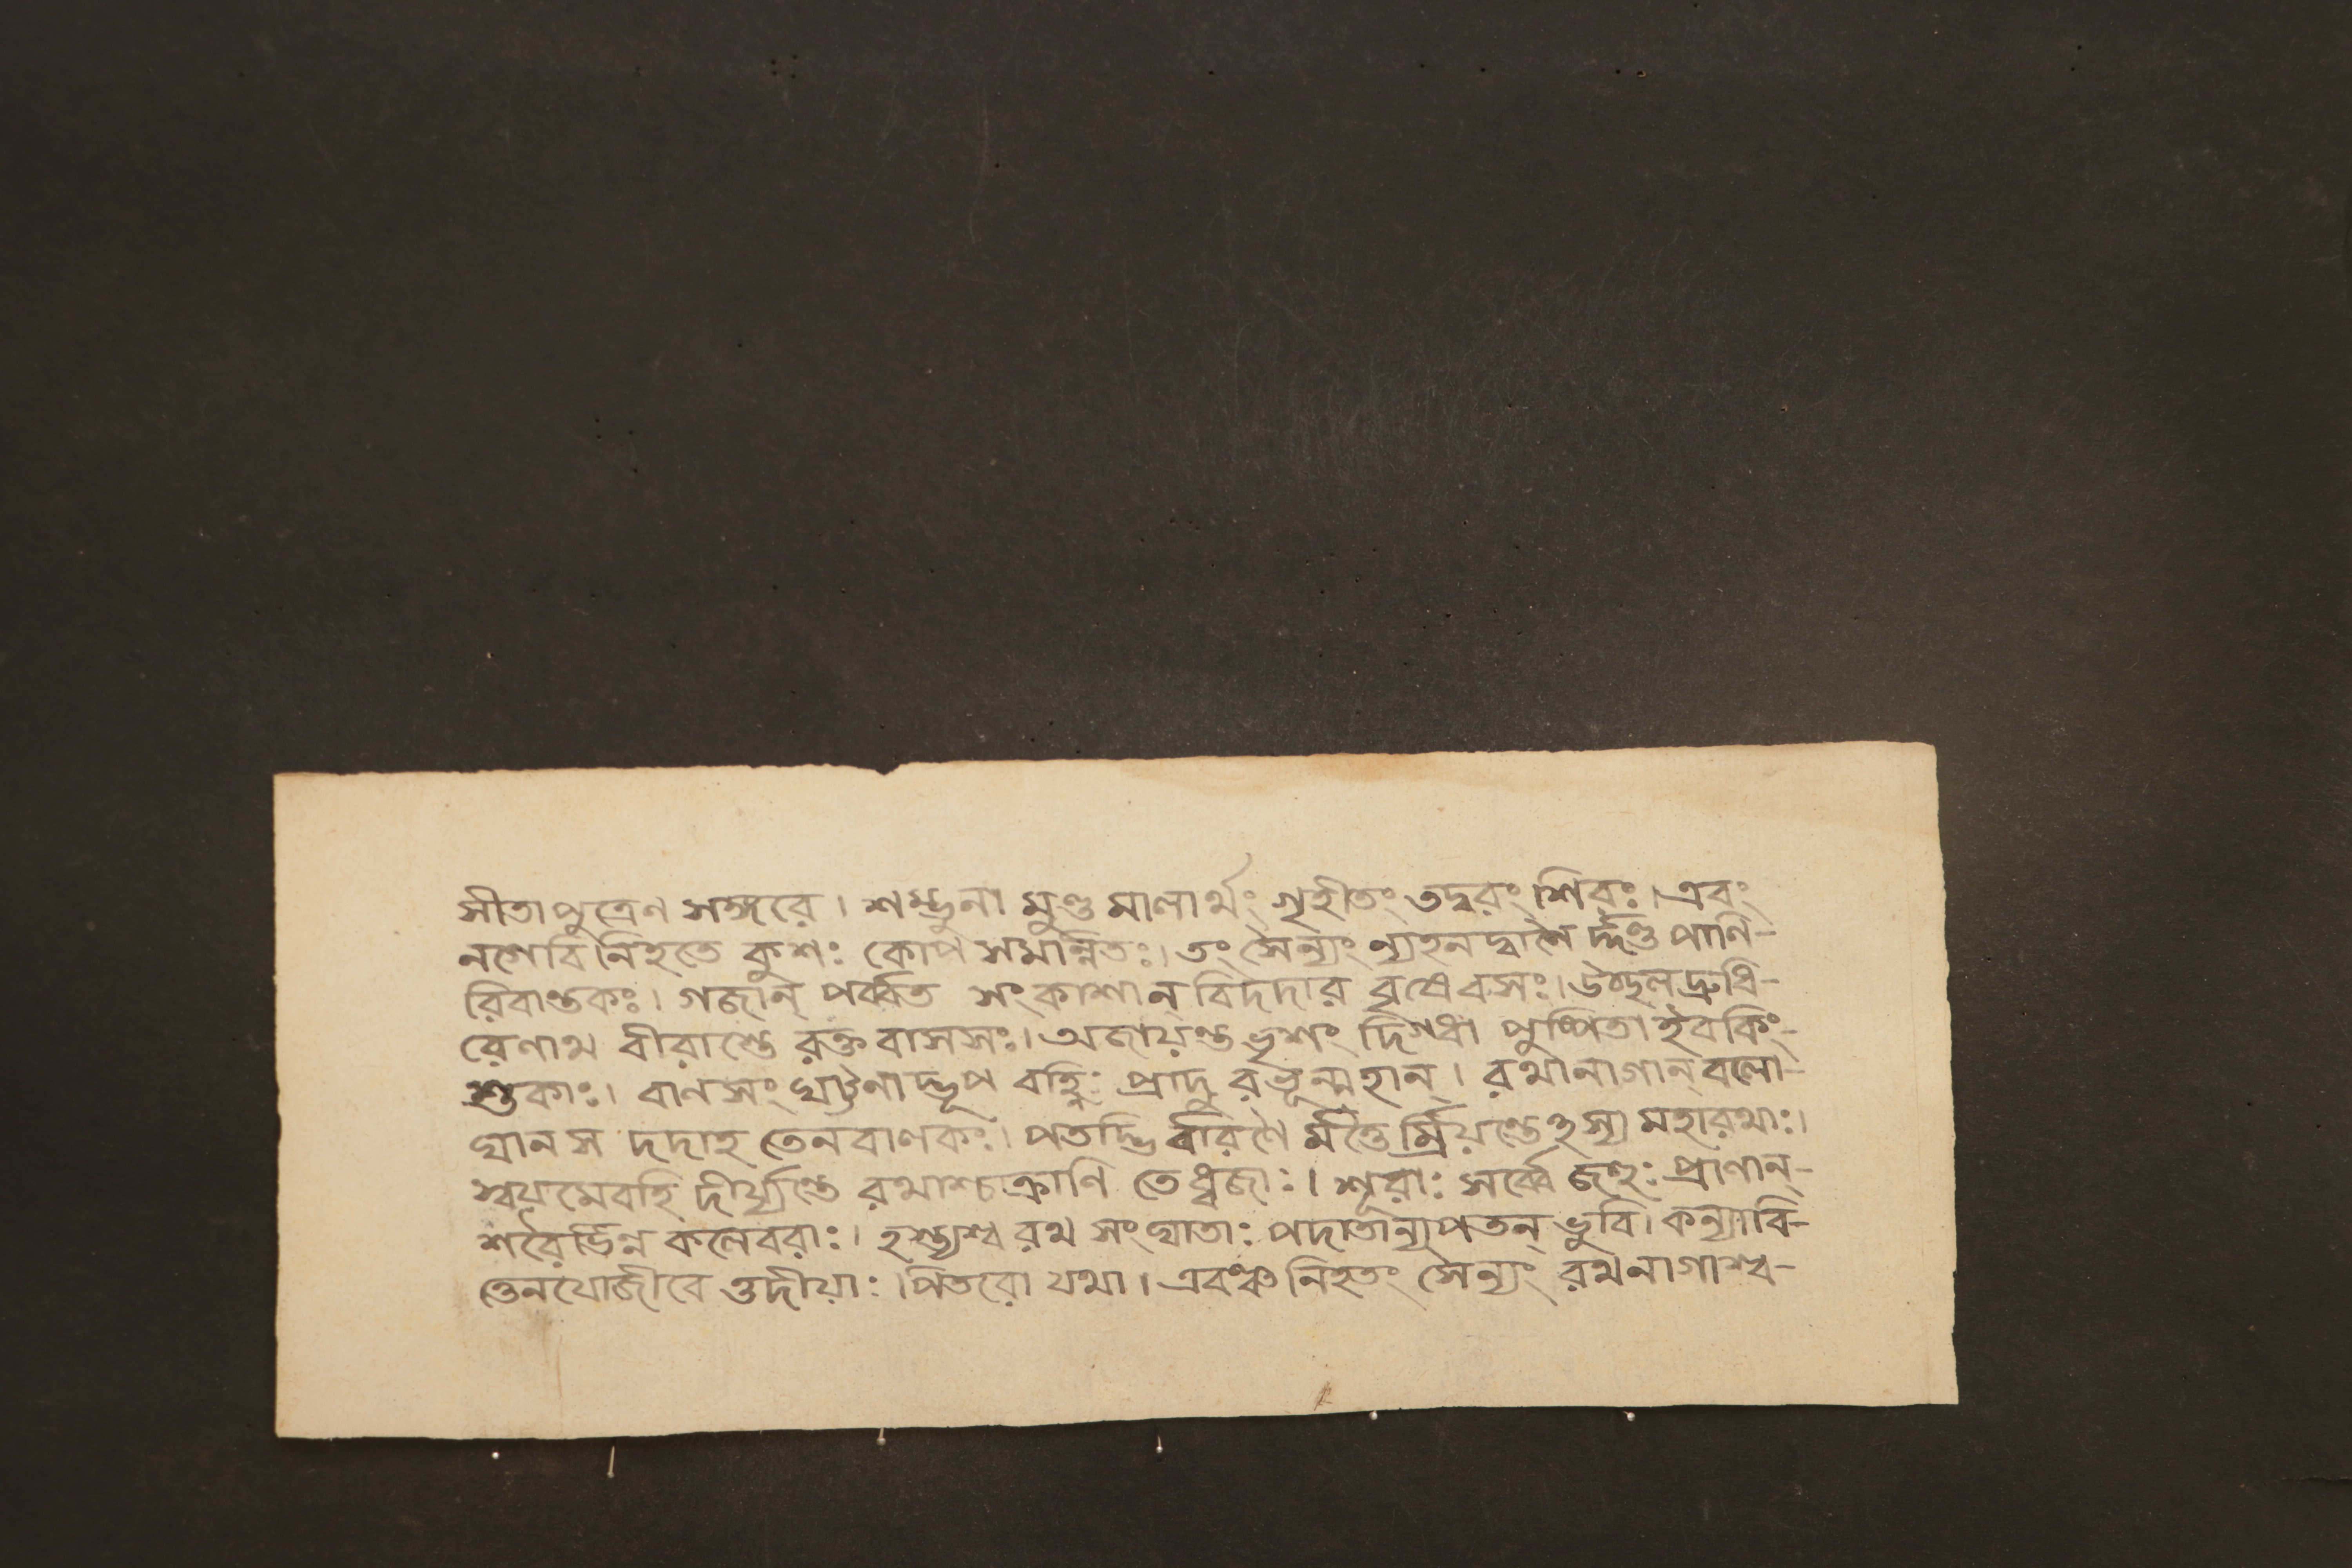 সীতাপুত্রেণ সঙ্গরে। শম্ভুনা মুণ্ড মালার্থং গৃহীতং তদ্বরং শিরঃ। এবং
নগেবি নিহতে কুশঃ কোপ সমান্বিতঃ। তং সৈন্যং ন্যহনদ্বাণৈ র্দ্দণ্ড পাণি-
রিবান্তকঃ। গজান্ পর্ব্বত সংকাশান্ বিদদার বৃষেবসঃ। উচ্ছলদ্রুধি-
রেণাথ বীরাস্তে রক্ত বাসসঃ। অজায়ন্ত ভৃশং দিগ্ধা পুষ্পিতা ইবকিং-
শুকাঃ। বানসং ঘট্টনাদ্ভূপ বহ্নিঃ প্রাদু রভূন্মহান্। রথানাগান্ বলো-
ঘান স দদাহ তেনবাণকঃ। পতদ্ভি র্বারণৈ র্মত্তৈ র্ম্রিয়ন্তেঽস্য মহারথাঃ।
স্বয়মেবহি দীর্য্যন্তে রথাশ্চক্রাণি তে ধ্বজাঃ। শূরাঃ সর্ব্বে জহুঃ প্রাণান্-
শরৈর্ভিন্ন কলেবরাঃ। হস্ত্যশ্ব রথ সংঘাতাঃ পদাতান্যপতন্ ভুবি। কন্যাবি-
ত্তেনযোজীবে ত্তদীয়াঃ। পিতরো যথা। এবঞ্চ নিহতং সৈন্যং রথনাগাশ্ব-